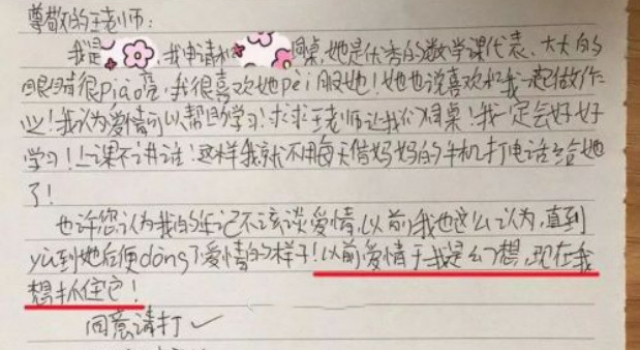 尊敬的王老师:
我是,我申请和同桌,她是优秀的数学课代表、大大的
眼睛很piào亮,我很喜欢她pèi服她!她也说喜欢和我一起做作
业!我认为爱情可以帮助学习!求求王老师让我们同桌!我一定会好好
学习!上课不讲话!这样我就不用每天借妈妈的手机打电话给她
了!
也许您认为我的年记不该谈爱情,以前我也这么认为,直到
yù到她后便dǒng了爱情的样子!以前爱情于我是幻想,现在我
想抓住它!
同意请打✓